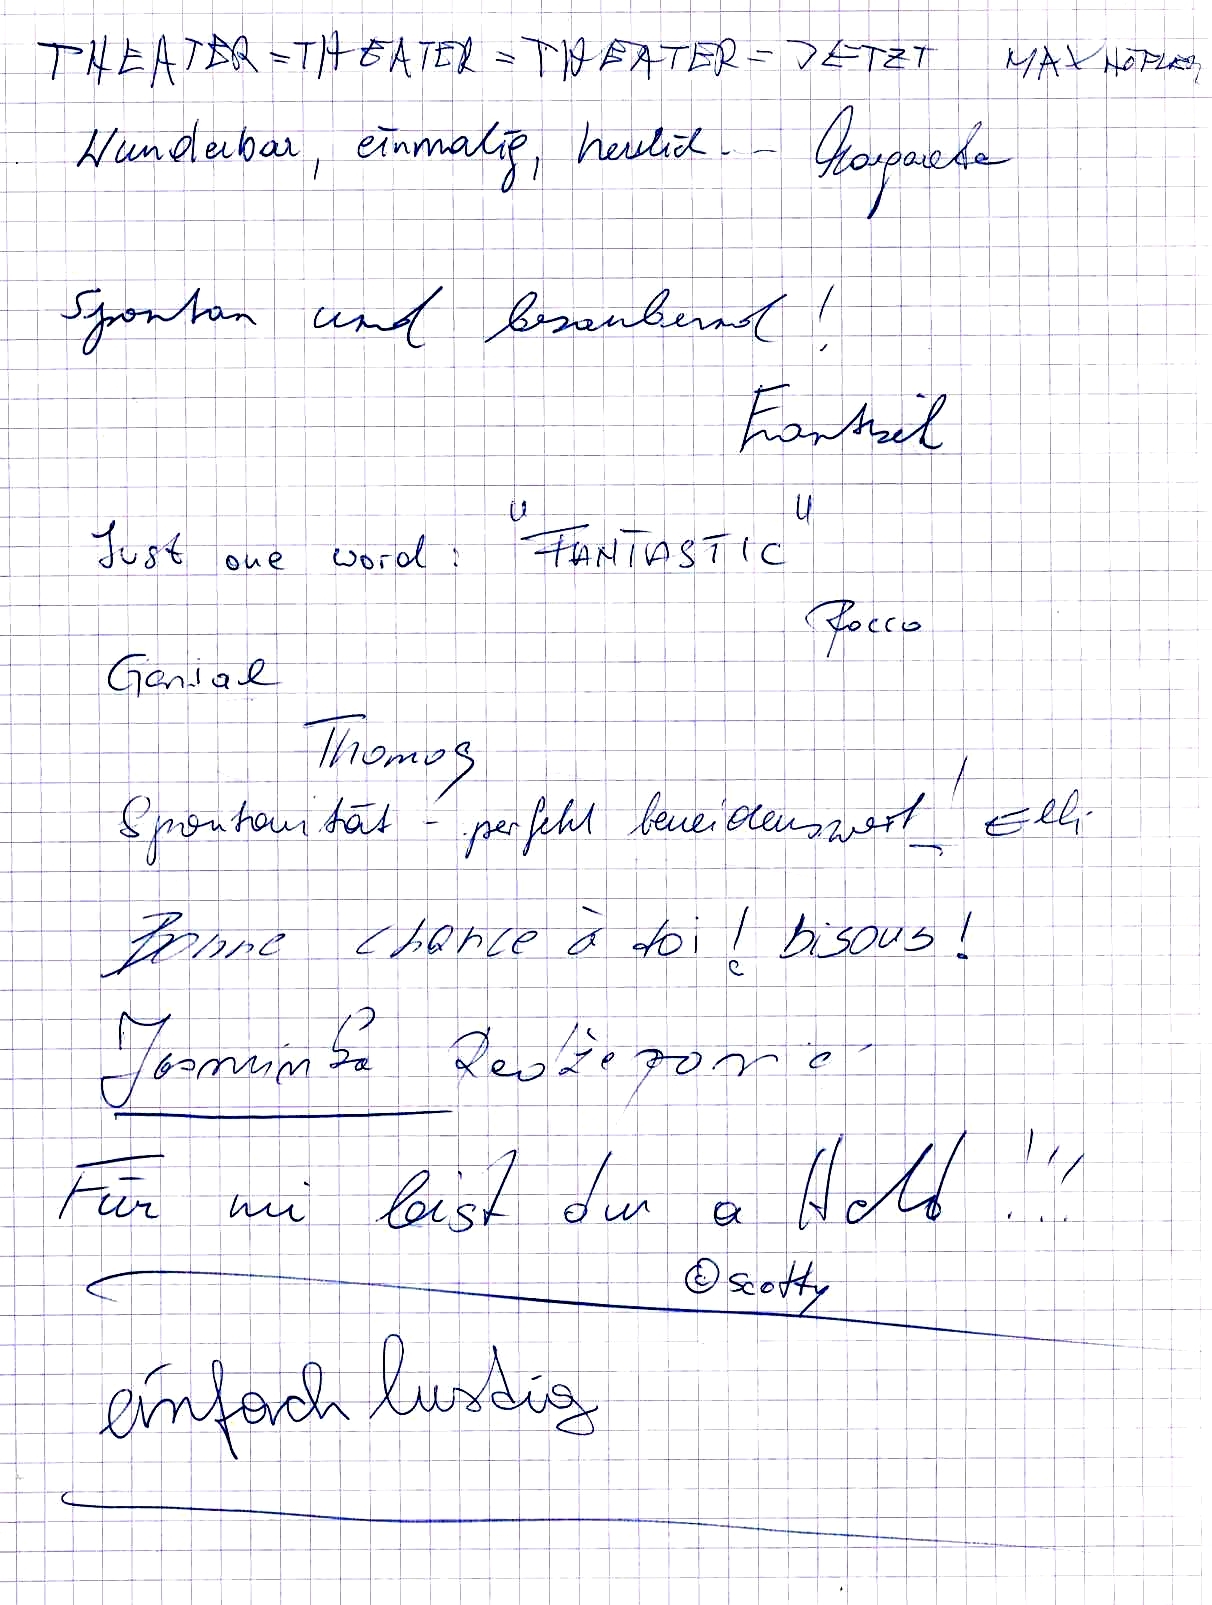 THEATER = THEATER = THEATER = JETZT MAX HÖFLER
Wunderbar, einmalig, herrlich -- Margareta
Spontan und bezaubernd!
Just one word: "FANTASTIC"
Rocco
Genial
Thomas
Spontanität - perfekt beneidenswert! Elli
Bonne chance à toi! bisous!
Jasminka Redžepović
Für mi bist du a Held!!!
© Scotty
einfach lustig